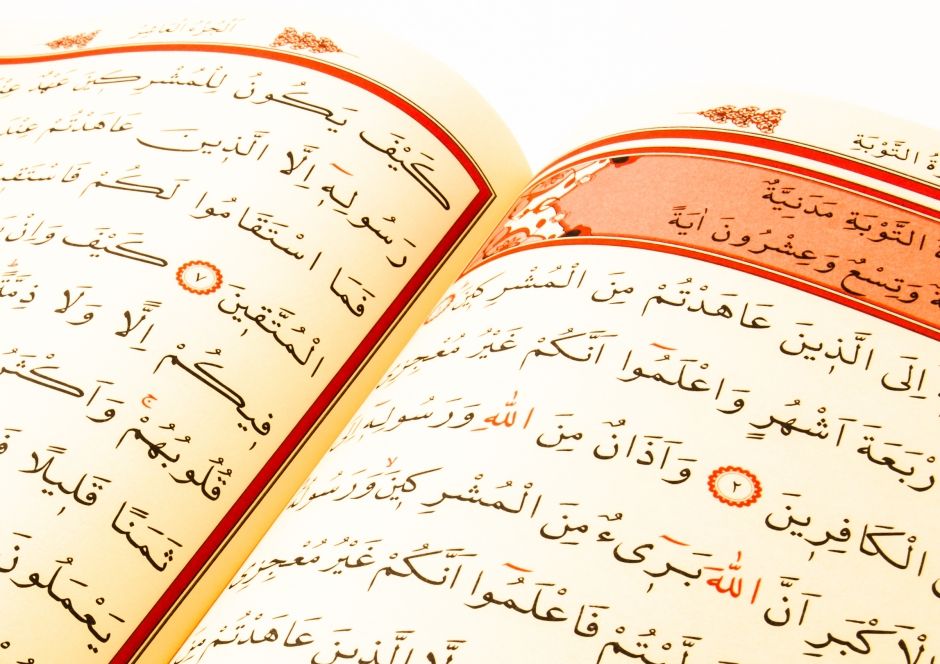 التَّوْبَةِ
التَّوْبَةِ مَدَنِيَّةٌ
وَتِسْعٌ وَعِشْرُونَ اٰيَةً
اِلَى الَّذِينَ عَاهَدْتُمْ مِنَ الْمُشْرِكِينَ
اَشْهُرٍ وَاعْلَمُٓوا اَنَّكُمْ غَيْرُ مُعْجِزِي
الْكَافِرِينَ ٢ وَاَذَانٌ مِنَ اللّٰهِ وَرَسُولِهِٓ
الْاَكْبَرِ اَنَّ اللّٰهَ بَرِٓيءٌ مِنَ الْمُشْرِكِينَۙ وَرَسُولُهُ
فَاعْلَمُٓوا اَنَّكُمْ غَيْرُ مُعْجِزِي
الَّذِينَ عَاهَدْتُمْ
اَلْجُزْءُ الْعَاشِرُ
كَيْفَ يَكُونُ لِلْمُشْرِكِينَ عَهْدٌ عِنْدَ
رَسُولِهِٓ اِلَّا الَّذِينَ عَاهَدْتُمْ عِنْدَ
فَمَا اسْتَقَامُوا لَكُمْ فَاسْتَقِيمُوا
الْمُتَّقِينَ ٧ كَيْفَ وَاِنْ
فِيكُمْ اِلًّا وَلَا ذِمَّةً
قُلُوبُهُمْۚ وَاَكْثَرُ
ثَمَنًا قَلِيلًا
يَعْمَلُونَ